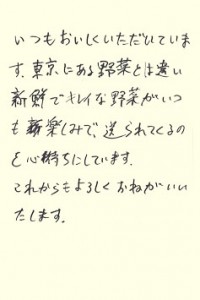 いつもおいしくいただいていま
す。東京にある野菜とは違い
新鮮でキレイな野菜がいつ
も楽しみで、送られてくるの
を心待ちにしています。
これからもよろしくおねがいい
たします。